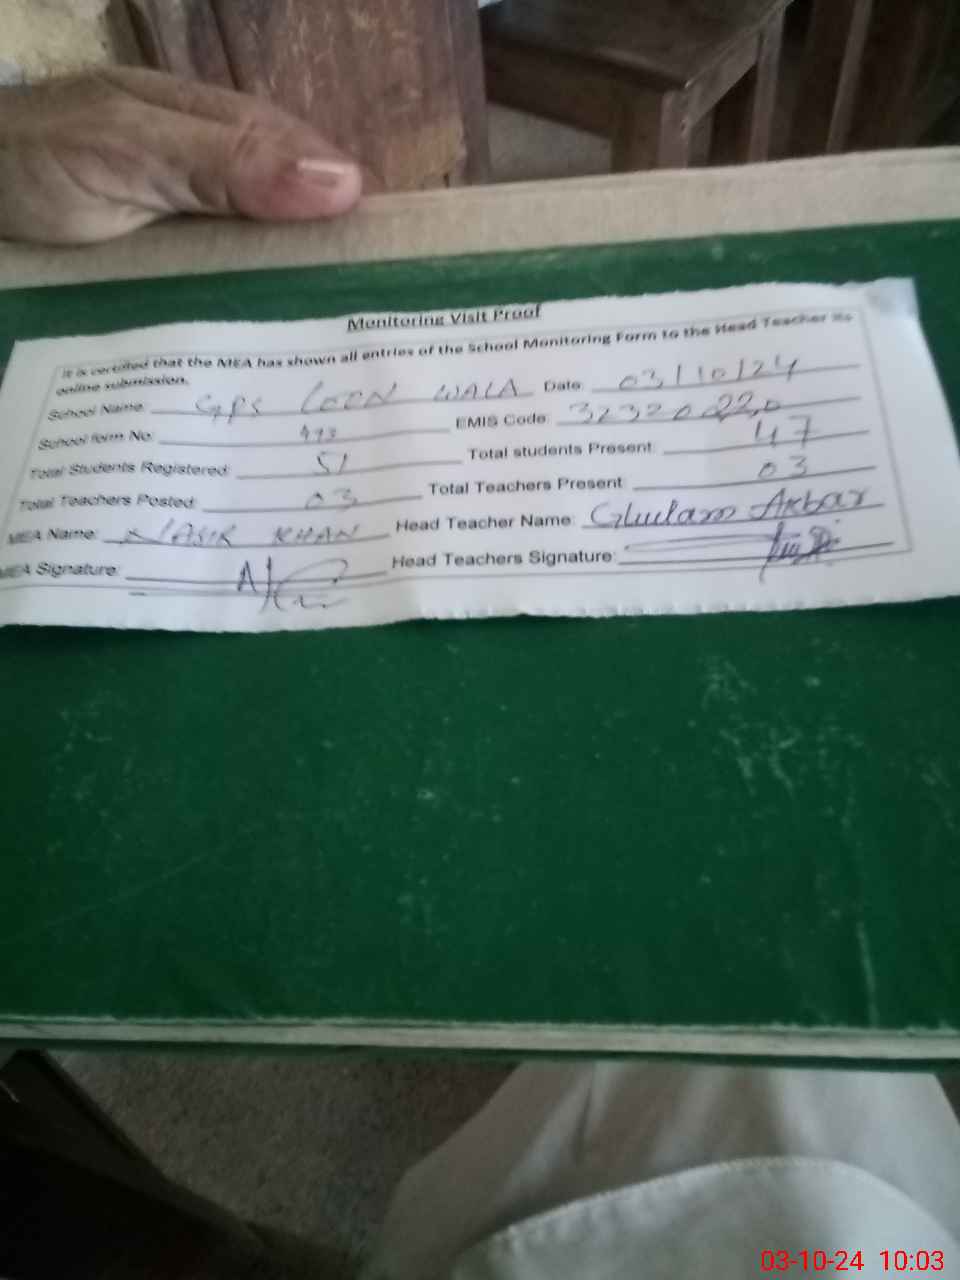 Monitoring Visit Proof
It is certified that the MEA has shown all entries of the School Monitoring Form to the Head Teacher
online submission.
School Name: GPS LOON WALA Date: 03/10/24
School form No: EMIS Code: 32320220
Total Students Registered: 51 Total students Present: 47
Total Teachers Posted: 03 Total Teachers Present: 03
MEA Name: NASIR KHAN Head Teacher Name: Ghulam Akbar
MEA Signature: Head Teachers Signature:
03-10-24 10:03